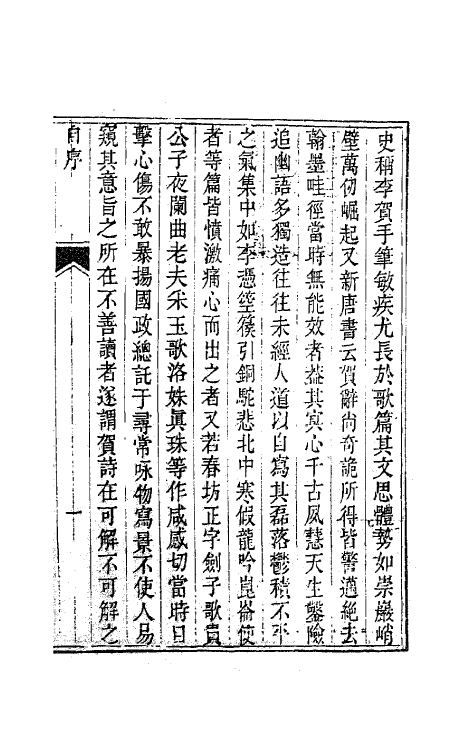 史稱李賀手筆敏疾尤長於歌篇其文思體勢如崇巖峭
壁萬仞崛起又新唐書云賀辭尚奇詭所得皆警邁絕去
翰墨畦徑當時無能效者葢其冥心千古夙慧天生鑿險
追幽語多獨造往往未經人道以自寫其磊落鬱積不平
之氣集中如李憑箜篌引銅駝悲北中寒假龍吟崑崙使
者等篇皆憤激痛心而出之者又若春坊正字劍子歌貴
公子夜闌曲老夫采玉歌洛姝真珠等作咸感切當時目
擊心傷不敢暴揚國政總託于尋常咏物寫景不使人易
窺其意旨之所在不善讀者遂謂賀詩在可解不可解之
自序
一